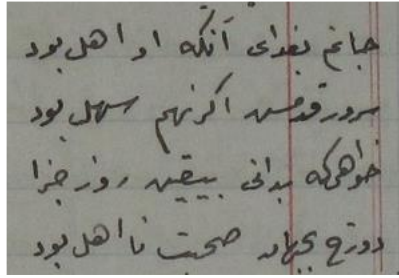 جانم بفدای آنکه او اهل بود
سر در قدمش اگر نهم سهل بود
خواهی که بدانی بیقین روز جزا
دوزخ بجهان صحبت نا اهل بود